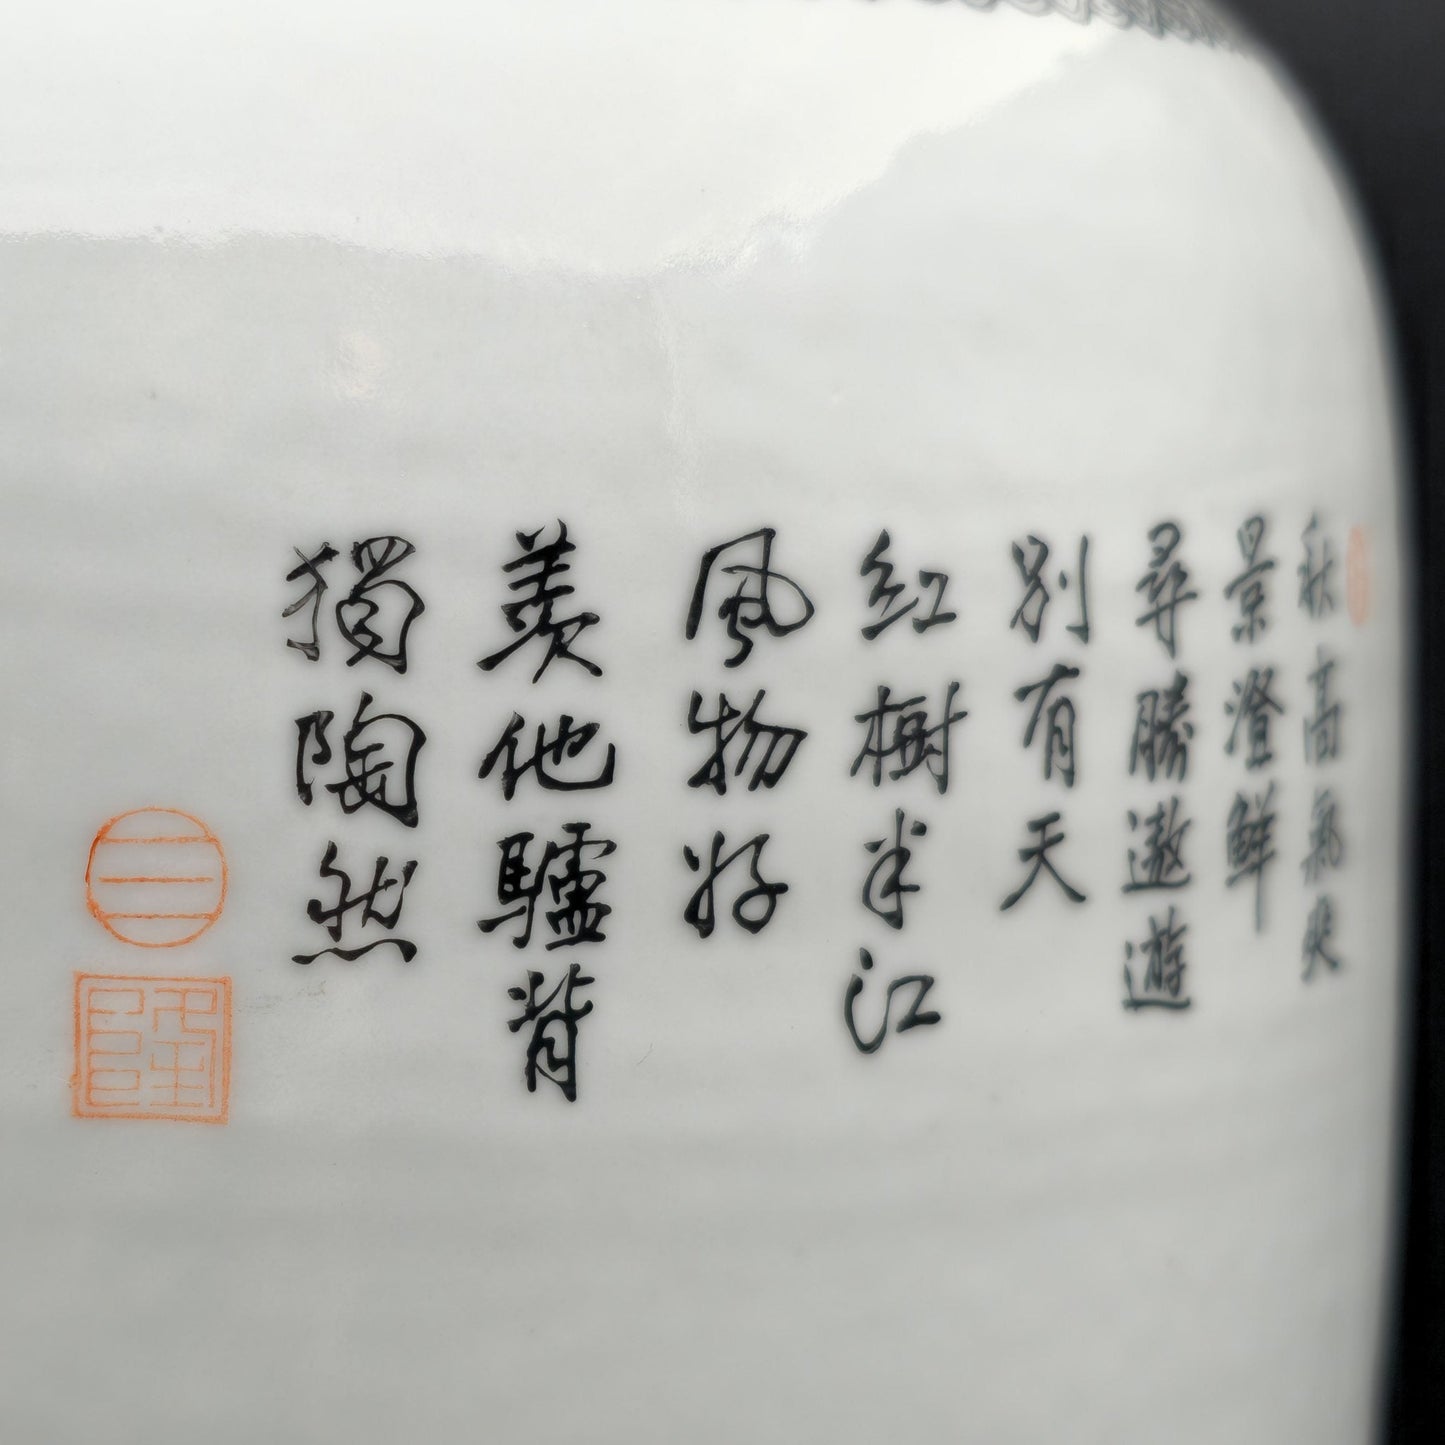 秋高氣爽
景澄鮮
尋勝遨遊
別有天
紅樹半江
風物好
羨他驢背
獨陶然
三